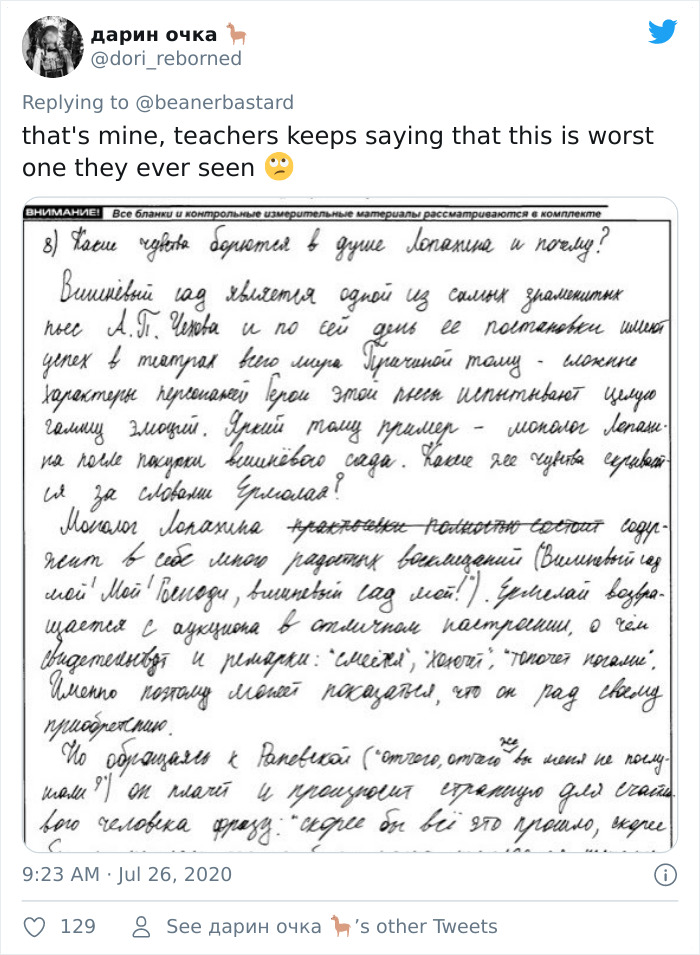 дарин очка 🦙
@dori_reborned
Replying to @beanerbastard
that's mine, teachers keeps saying that this is worst
one they ever seen 🙄
ВНИМАНИЕ! Все бланки и контрольные измерительные материалы рассматриваются в комплекте
8) Какие чувства борются в душе Лопахина и почему?
Вишнёвый сад является одной из самых знаменитых
пьес А.П. Чехова и по сей день ее постановки имеют
успех в театрах всего мира Причиной тому - сложные
характеры персонажей Герои этой пьесы испытывают целую
гамму эмоций. Яркий тому пример - монолог Лопахи-
на после покупки вишнёвого сада. Какие же чувства скрывают-
ся за словами Ермолая?
Монолог Лопахина практически полностью состоит содер-
жит в себе много радостных восклицаний (Вишневый сад
мой! Мой! Господи, вишневый сад мой!"). Ермолай возвра-
щается с аукциона в отличном настроении, о чём
свидетельствуют и ремарки: "смеётся", "хохочет", "топочет ногами".
Именно поэтому может показаться, что он рад своему
приобретению.
Но обращаясь к Раневской ("отчего, отчего же вы меня не послу-
шали?") он плачет и произносит странную для счастли
вого человека фразу: "скорее бы всё это прошло, скорее
9:23 AM · Jul 26, 2020
129
See дарин очка 🦙's other Tweets